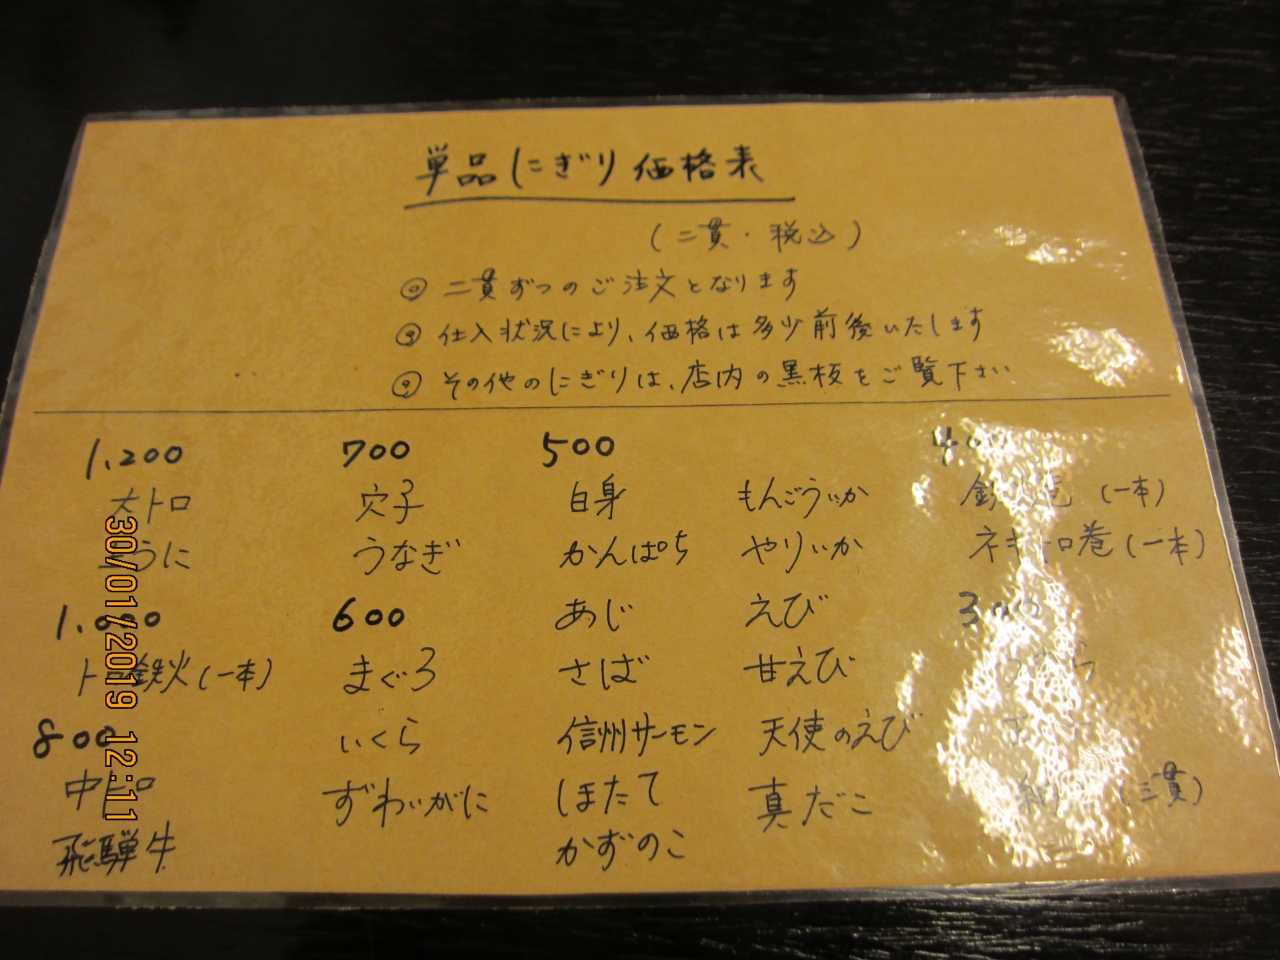 単品にぎり価格表
(二貫・税込)
◎ 二貫ずつのご注文となります
◎ 仕入状況により、価格は多少前後いたします
◎ その他のにぎりは、店内の黒板をご覧下さい
1,200
大トロ
生うに
1,000
トロ鉄火(一本)
800
中トロ
飛騨牛
700
穴子
うなぎ
600
まぐろ
いくら
ずわいがに
500
白身
かんぱち
あじ
さば
信州サーモン
ほたて
かずのこ
もんごういか
やりいか
えび
甘えび
天使のえび
真だこ
400
鉄火巻(一本)
ネギトロ巻(一本)
300
(三貫)
30/01/2019 12:11